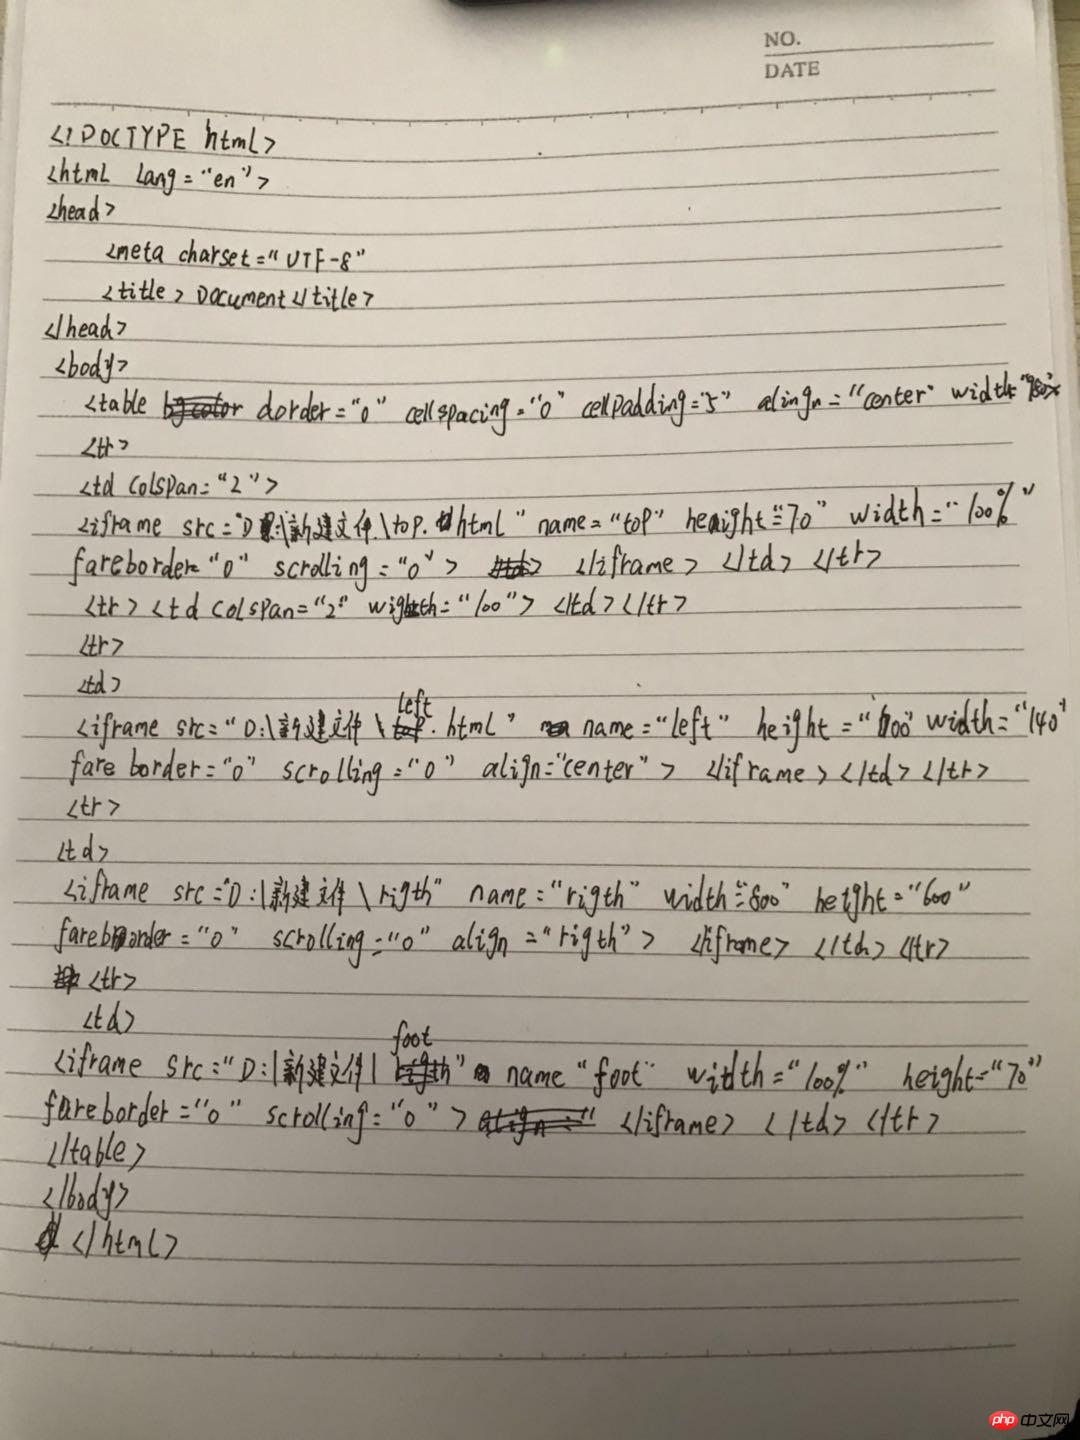 NO.
DATE
<!DOCTYPE html>
<html lang="en">
<head>
<meta charset="UTF-8"
<title>Document</title>
</head>
<body>
<table dorder="0" cellspacing="0" cellpadding="5" alingn="center" width=
<tr>
<td colspan="2">
<iframe src="D:\新建文件\top.html" name="top" heaight="70" width="100%"
fareborder="0" scrolling="0"> </iframe></td></tr>
<tr><td colspan="2" width="100"></td></tr>
<tr>
<td>
<iframe src="D:\新建文件\left.html" name="left" height="600" width="140"
fareborder="0" scrolling="0" align="center"> </iframe></td></tr>
<tr>
<td>
<iframe src="D:\新建文件\rigth" name="rigth" width="800" height="600"
fareborder="0" scrolling="0" align="rigth"> </iframe></td><tr>
<tr>
<td>
<iframe src="D:\新建文件\foot" name "foot" width="100%" height="70"
fareborder="0" scrolling="0"> </iframe></td></tr>
</table>
</body>
</html>
php 中文网